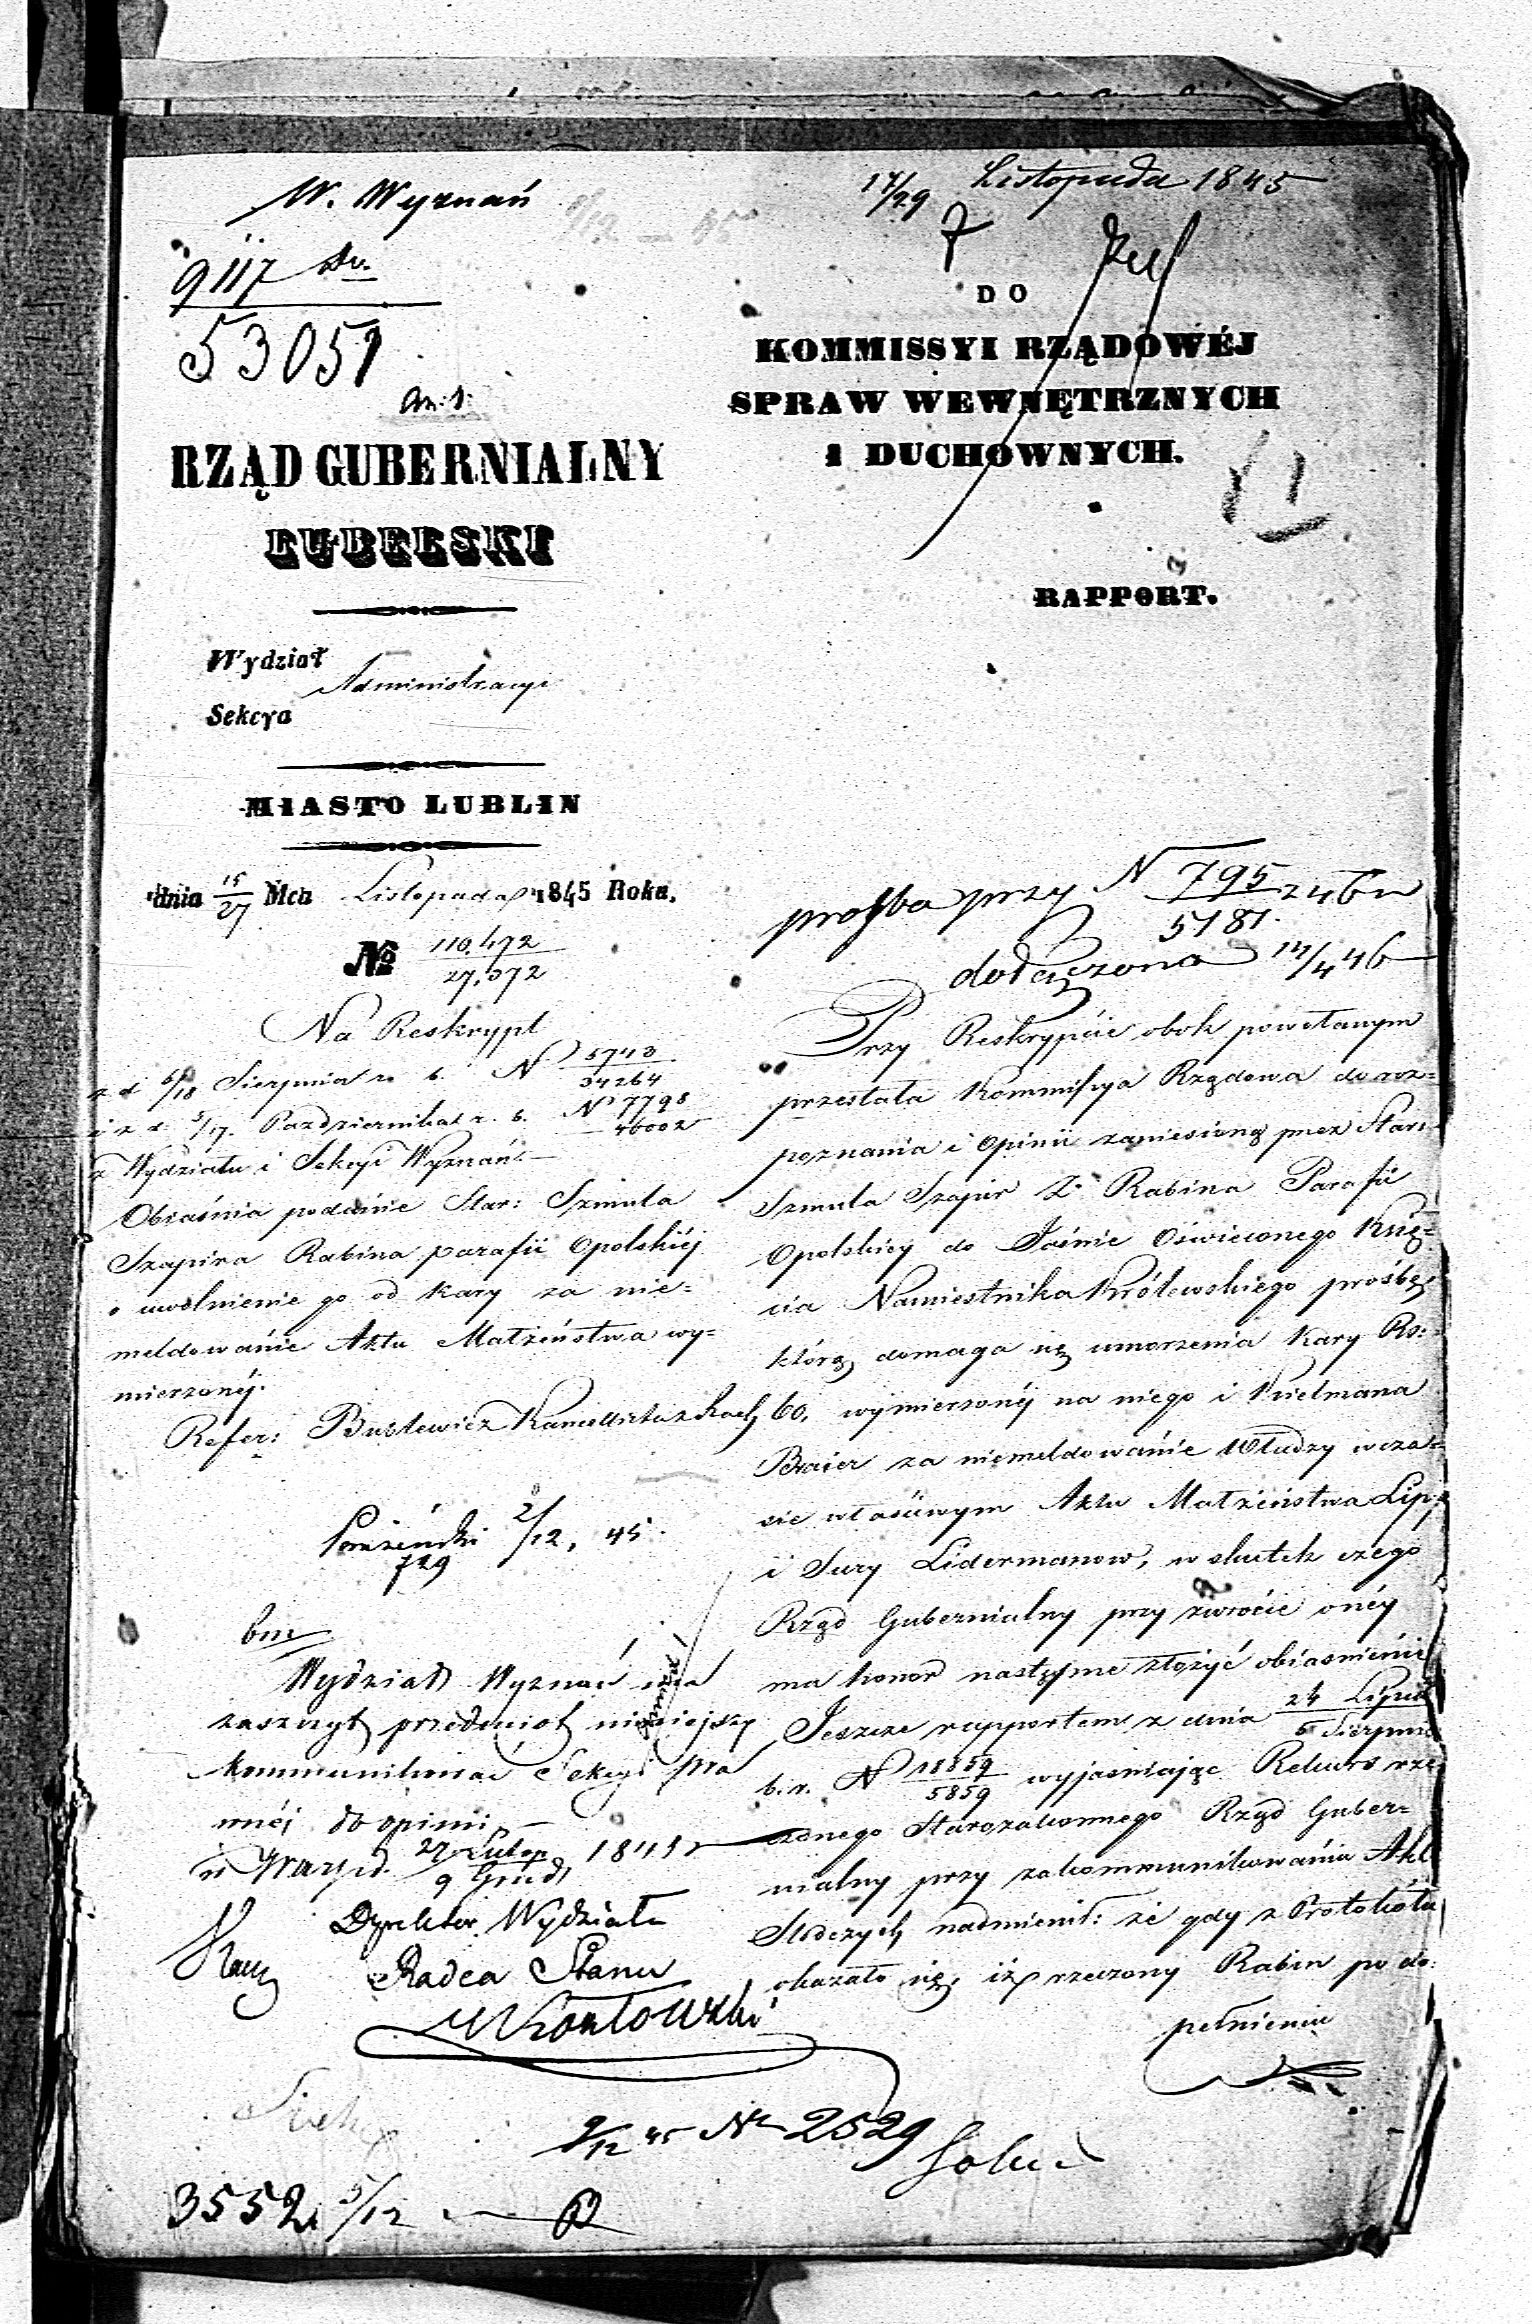 W. Wyznań
9117
53051
RZĄD GUBERNIALNY
LUBELSKI
Wydział Administracyi
Sekcya
MIASTO LUBLIN
dnia 15/27 Mca Listopada 1845 Roku.
№ 110,472/27,372
Na Reskrypt
z d 6/18 Sierpnia r. b. N 5743/34264
i z d. 5/17. Października r. b. N 7798/46002
z Wydziału i Sekcyi Wyznań
Obiaśnia podanie Star: Szmula
Szapira Rabina parafii Opolskiéj
o uwolnienie go od kary za nie=
meldowanie Aktu Małżeństwa wy=
mierzonéj.
Refer:
2/12, 45.
729
bm
Wydział Wyznań ma
zaszczyt przedmiot niniejszy
kommunikować Sekcyi Pra
wnéj do opinii
w Warsz d. 27 Listop/9 Grud, 1845 r
Dyrektor Wydziału
Radca Stanu
9/12 45 Nr 2529
3552 5/12
17/29 Listopada 1845
7
DO
KOMMISSYI RZĄDOWÉJ
SPRAW WEWNĘTRZNYCH
I DUCHOWNYCH.
11
RAPPORT.
proźba przy N 795/5181. z 46 r
dołączona 14/4 46
Przy Reskrypcie obok powołanym
przesłała Kommissya Rządowa do roz=
poznania i Opinii zaniesioną przez Star:
Szmula Szapir Z. Rabina Parafii
Opolskiey do Jaśnie Oświeconego Xię=
cia Namiestnika Królewskiego prośbę,
którą domaga się umorzenia Kary Rs:
60, wymierzonéj na niego i Kielmana
Braier za niemeldowanie Władzy w cza=
sie właściwym Aktu Małżeństwa Lip
i Sury Lidermanow, w skutek czego
Rząd Gubernialny przy zwrócie onéy
ma honor następne złożyć obiasnienie
Jeszcze rapportem z dnia 24 Lipca/6 Sierpnia
b. r. N 18859/5859 wyjaśniając Rekurs rze
czonego Starozakonnego Rząd Guber=
nialny przy zakommunikowaniu Akt
Sledczych nadmienił: że gdy z Protokółu
okazało się, iż rzeczony Rabin po do=
pełnieniu